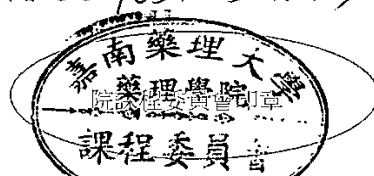 嘉南藥理大學
藥理學院
院課程委員會印章
課程委員會